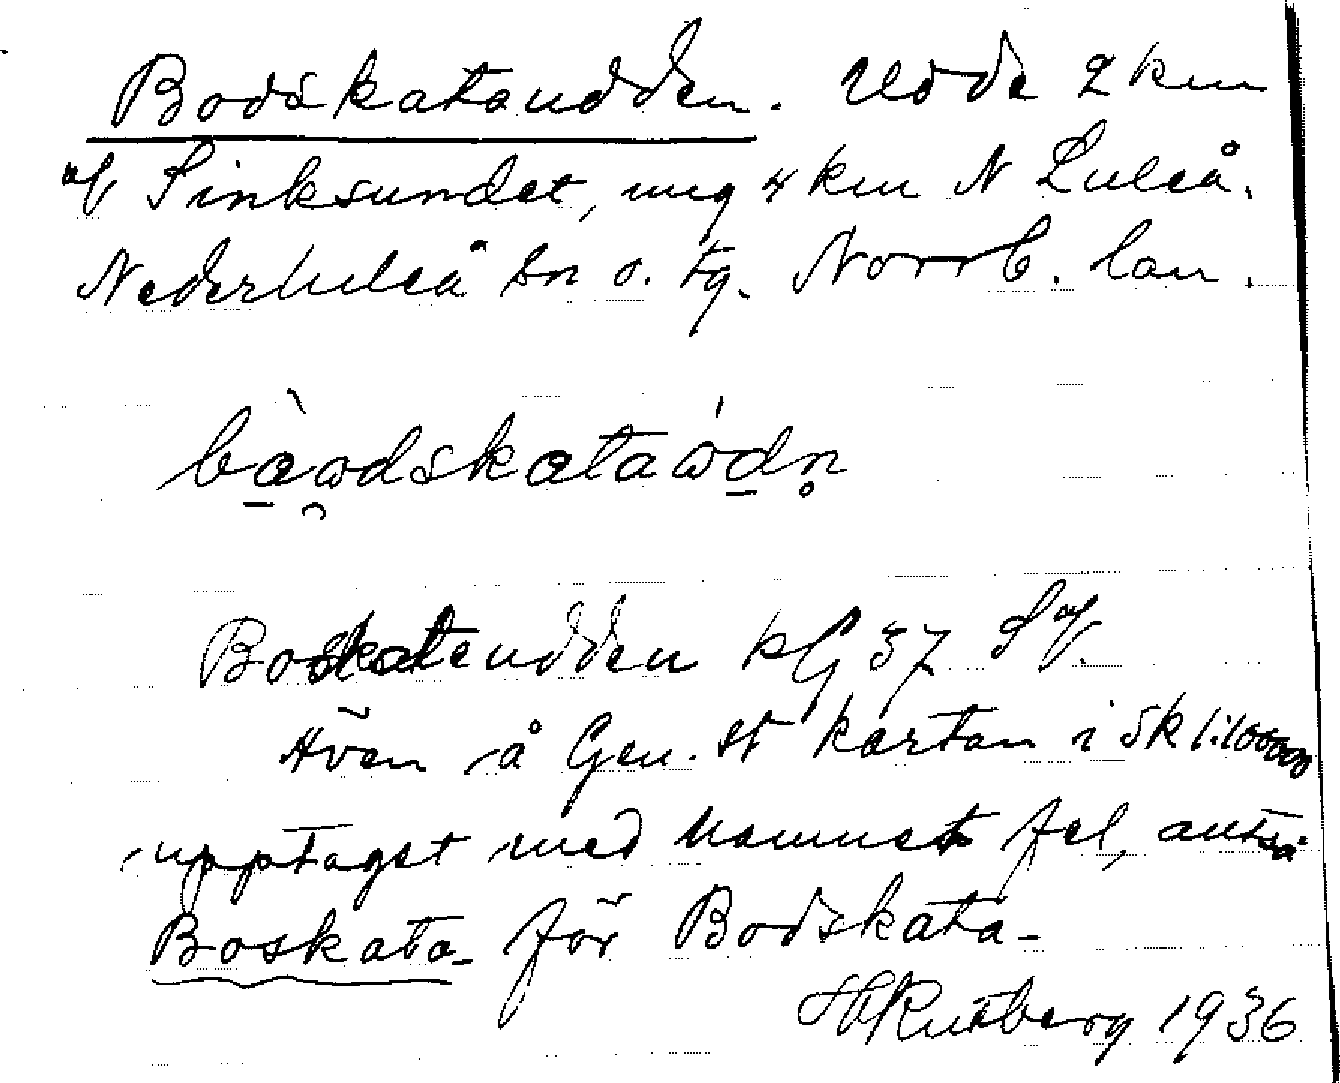 Bodskataudden. Udde 2 km
af Sinksundet, ung 4 km N Luleå.
Nederluleå sn o. tg. Norrb. län.
bàodskataódn
Boskataudden kG 37 Sf.
Även å Gen. St kartan i sk 1:100000
upptaget med namnet fel, antså
Boskata- för Bodskata-
H Rutberg 1936